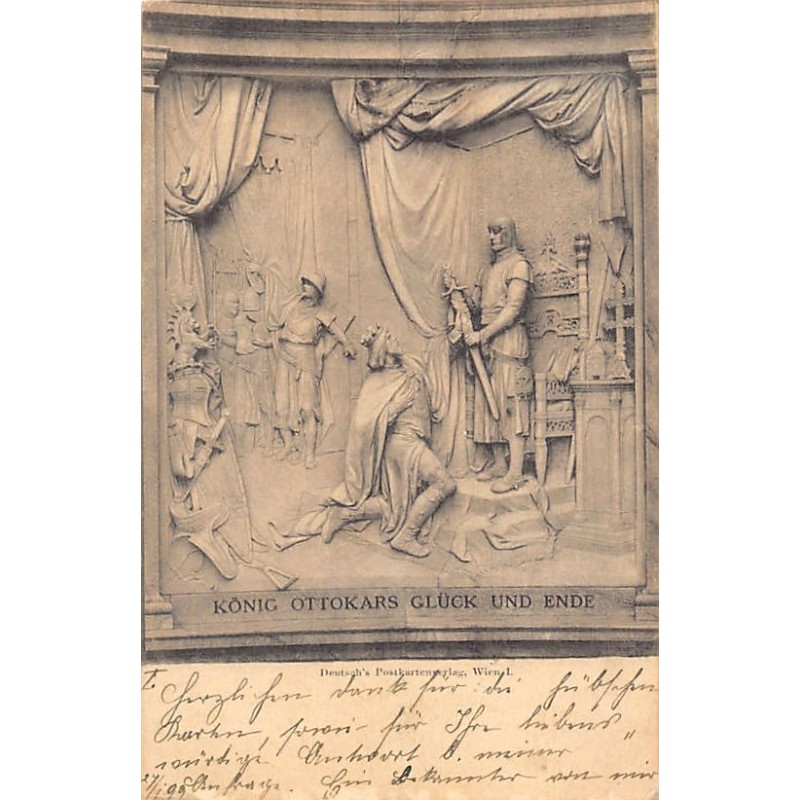 KÖNIG OTTOKARS GLÜCK UND ENDE
Deutsch's Postkartenverlag, Wien I.
I. Herzlichen dank für die hübschen
Karten, sowie für Ihre liebens„
würdige Antwort b. meiner
27/1 99 Anfrage. Ein Bekannter von mir